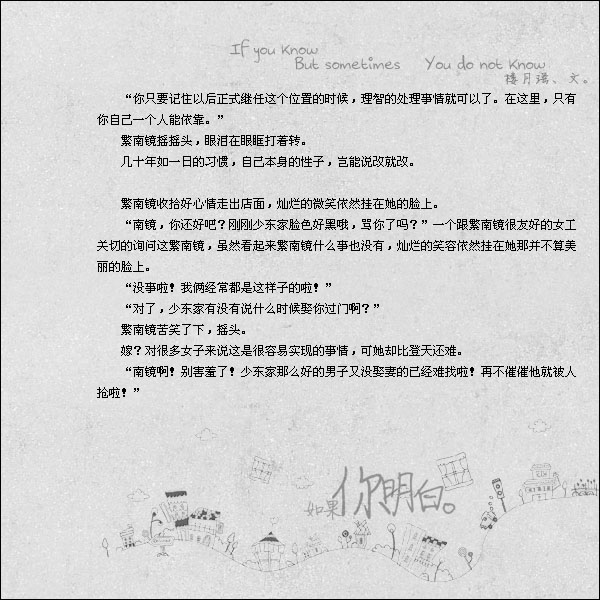 If you know
But sometimes You do not know
楼月瑶、文。
“你只要记住以后正式继任这个位置的时候，理智的处理事情就可以了。在这里，只有
你自己一个人能依靠。”
繁南镜摇摇头，眼泪在眼眶打着转。
几十年如一日的习惯，自己本身的性子，岂能说改就改。
繁南镜收拾好心情走出店面，灿烂的微笑依然挂在她的脸上。
“南镜，你还好吧？刚刚少东家脸色好黑哦，骂你了吗？”一个跟繁南镜很友好的女工
关切的询问这繁南镜，虽然看起来繁南镜什么事也没有，灿烂的笑容依然挂在她那并不算美
丽的脸上。
“没事啦！我俩经常都是这样子的啦！”
“对了，少东家有没有说什么时候娶你过门啊？”
繁南镜苦笑了下，摇头。
嫁？对很多女子来说这是很容易实现的事情，可她却比登天还难。
“南镜啊！别害羞了！少东家那么好的男子又没娶妻的已经难找啦！再不催催他就被人
抢啦！”
如果你明白。